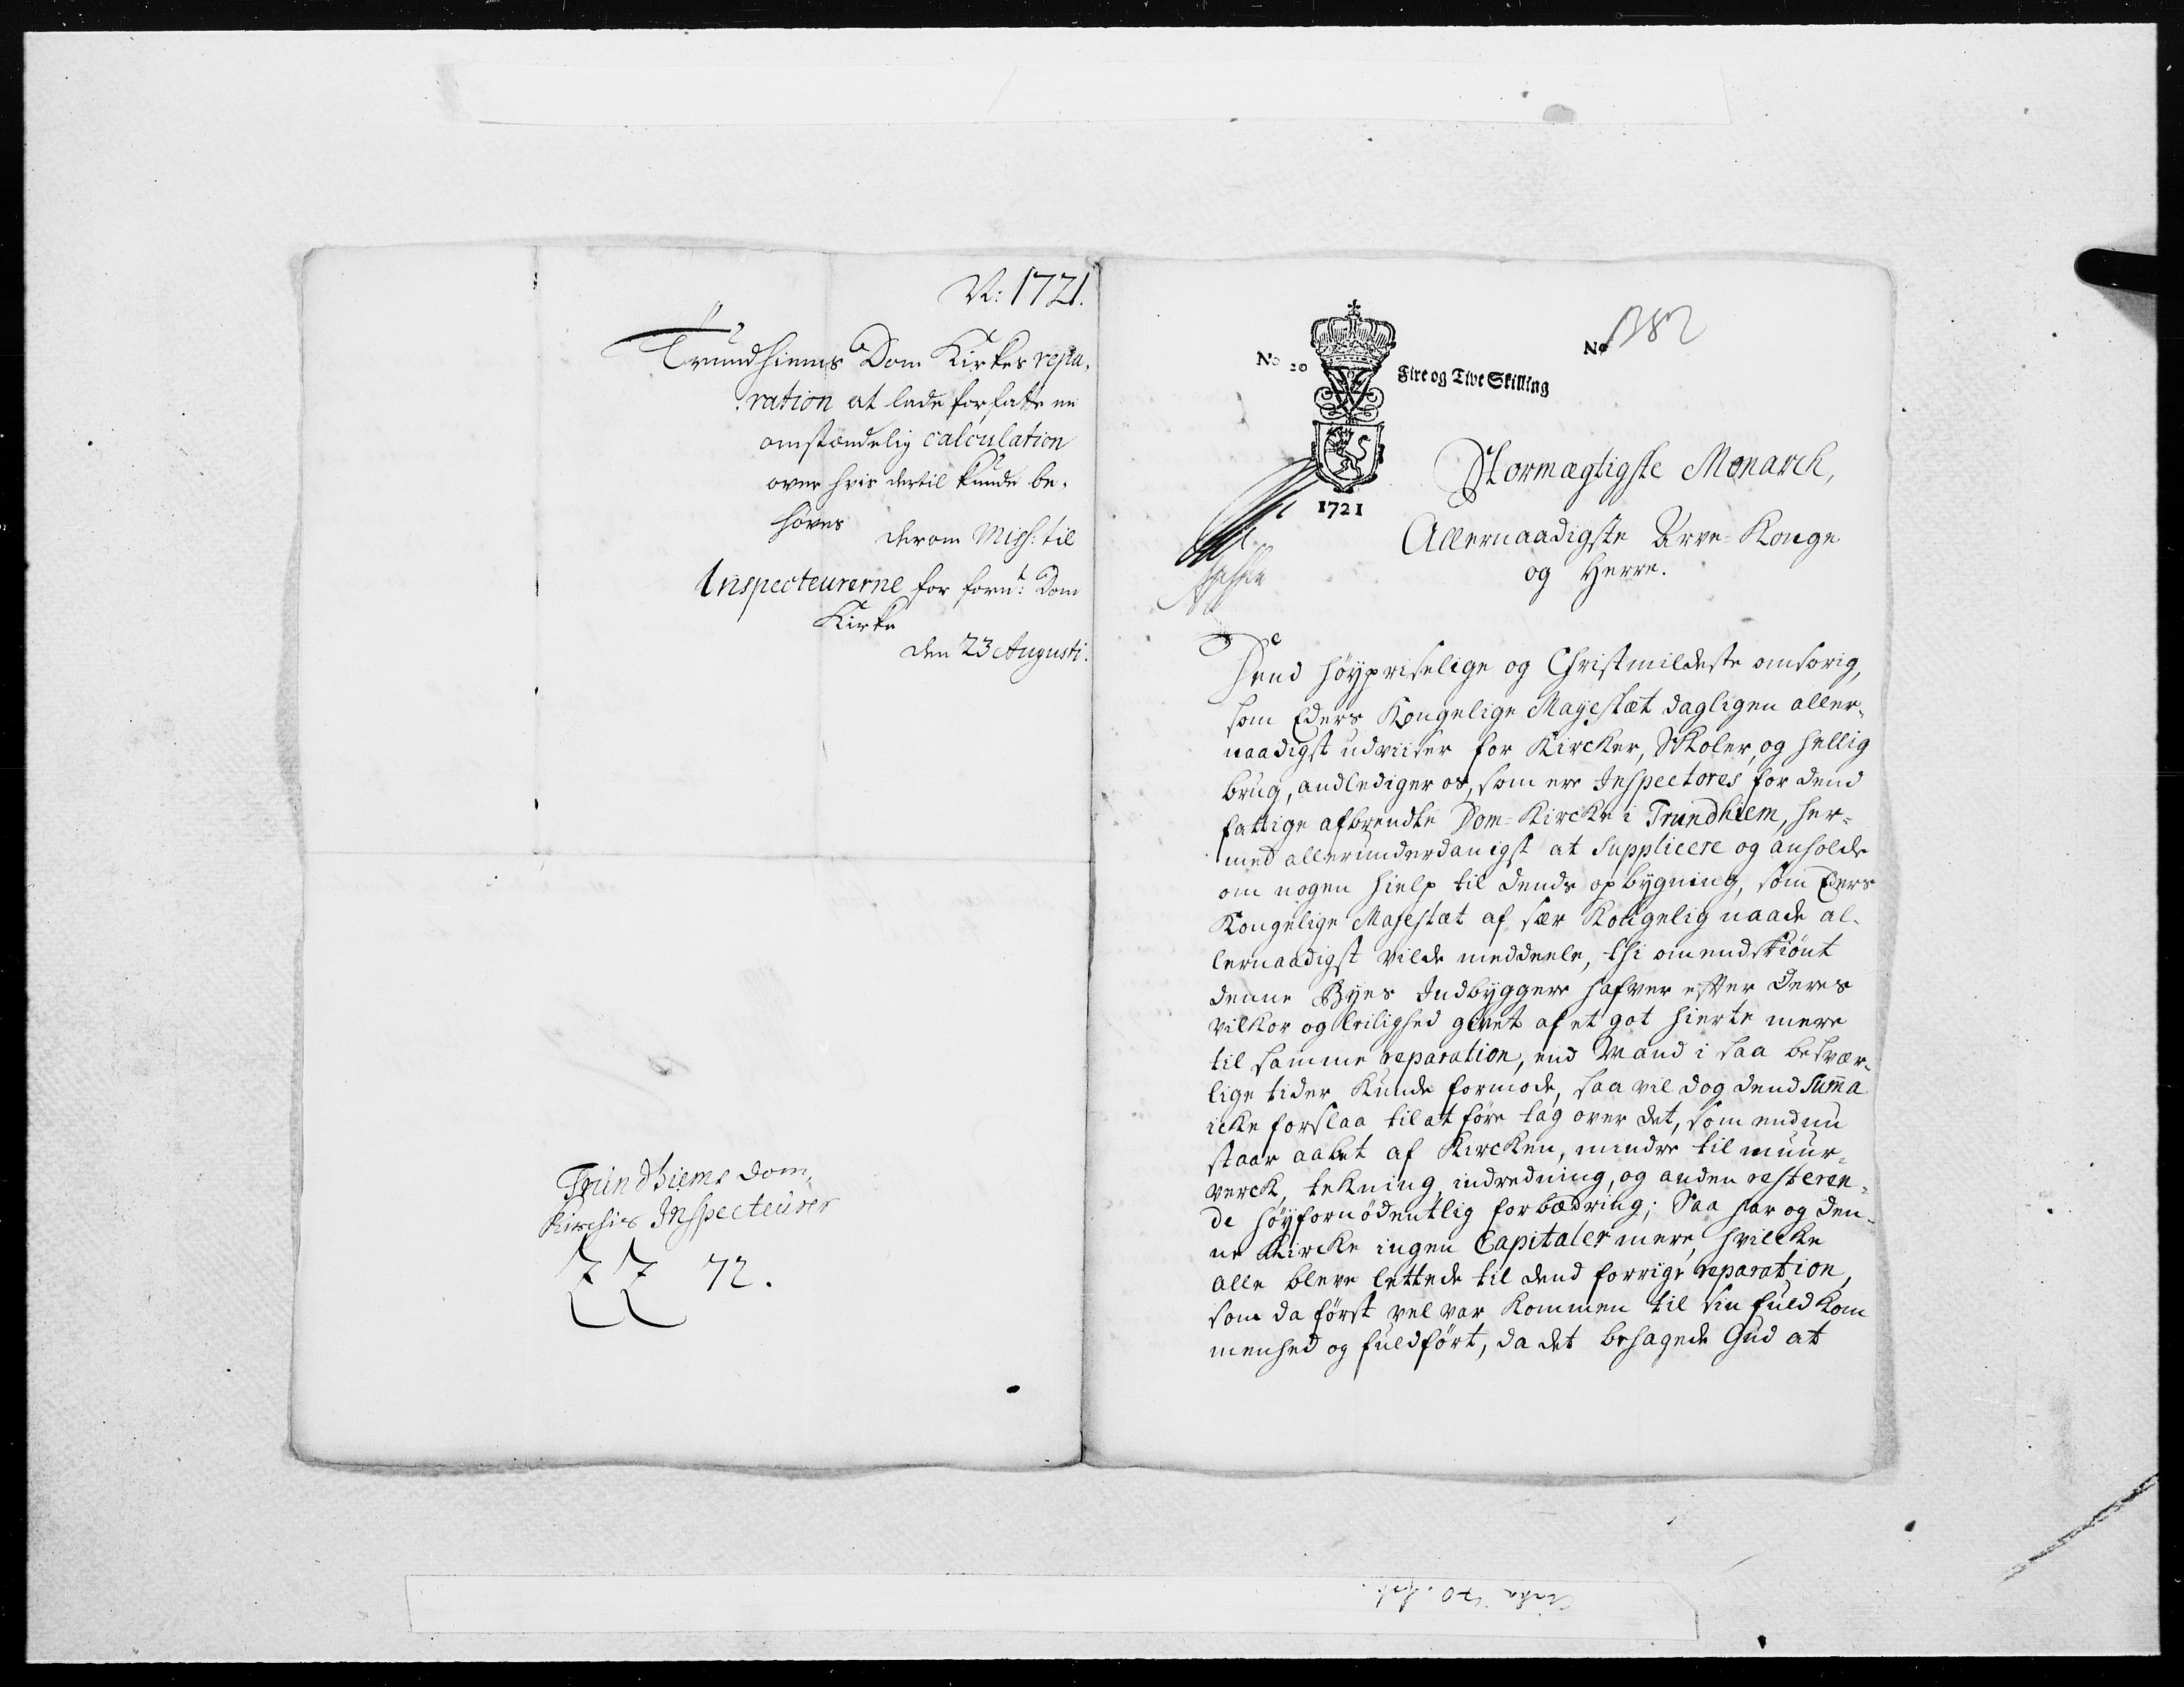 N: 1721.
Trundhiems Dom Kirkes repa-
ration at lade forfatte en
omstændelig calculation
over hvis dertil kunde be-
høves
derom Miss: til
Inspecteurerne for fornt: Dom
Kirke
den 23 Augusti.
Trundhiems Dom
Kirchis Inspecteurer
72.
No 20
Fire og Tive Skilling
No 1382
1721
Stormægtigste Monarch,
Allernaadigste Arve-Konge
og Herre.
Dend høypriselige og Christmildeste omsorig,
som Eders Kongelige Mayestæt dagligen aller-
naadigst udviiser for Kircker, Skoler, og hellig
brug, andlediger os, som ere Inspectores for dend
fattige afbrendte Dom-Kircke i Trundhiem, her-
med allerunderdanigst at Supplicere og anholde
om nogen hielp til dends opbygning, som Eders
Kongelige Majestæt af sær Kongelig naade al-
lernaadigst vilde meddeele, thi omendskiønt
denne Byes Indbyggere hafver efter deres
vilkor og leilighed givet af et got hierte mere
til samme reparation, end Mand i saa besvær-
lige tider kunde formode, saa vil dog dend Suma
icke forslaa til at føre tag over det, som endnu
staar aabet af Kircken, mindre til muur-
verck, tekning, indredning, og anden resteren-
de høyfornødentlig forbædring; Saa har og den-
ne Kircke ingen Capitaler mere, hvilcke
alle bleve lettede til dend forrige reparation,
som da først vel var kommen til sin fuldkom
menhed og fuldført, da det behagede Gud at